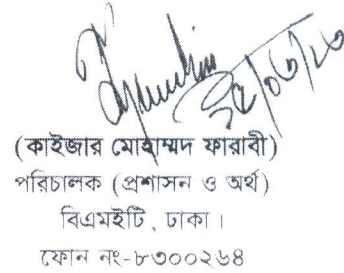 (কাইজার মোহাম্মদ ফারাবী)
পরিচালক (প্রশাসন ও অর্থ)
বিএমইটি, ঢাকা।
ফোন নং-৮৩০০২৬৪